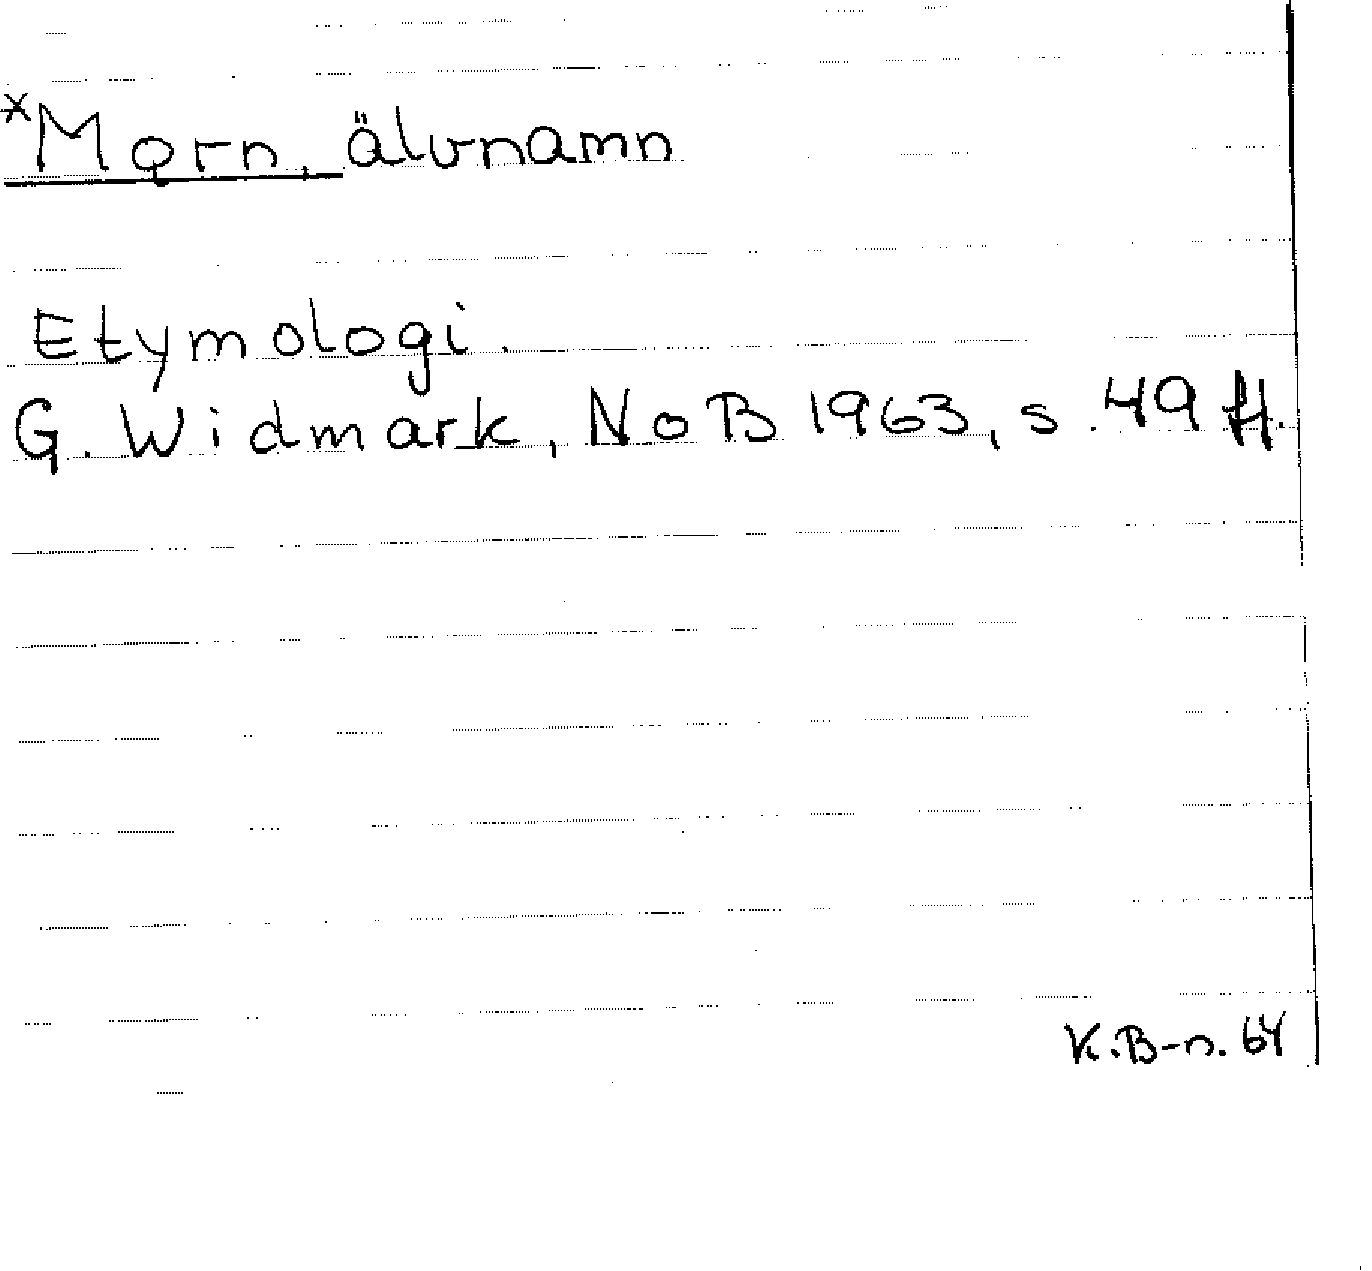 *Mǫrn, älvnamn
Etymologi.
G. Widmark, NoB 1963, s. 49 ff.
K.B-n. 64